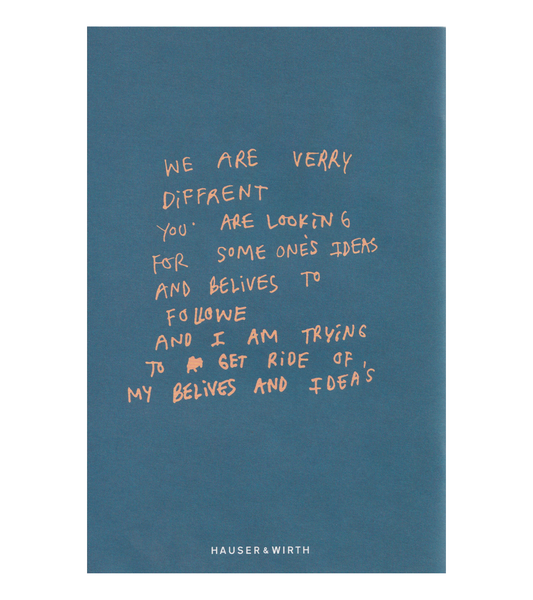 WE ARE VERRY
DIFFRENT
YOU. ARE LOOKING
FOR SOME ONE'S IDEAS
AND BELIVES TO
FOLLOWE
AND I AM TRYING
TO GET RIDE OF
MY BELIVES AND IDEA'S
HAUSER & WIRTH